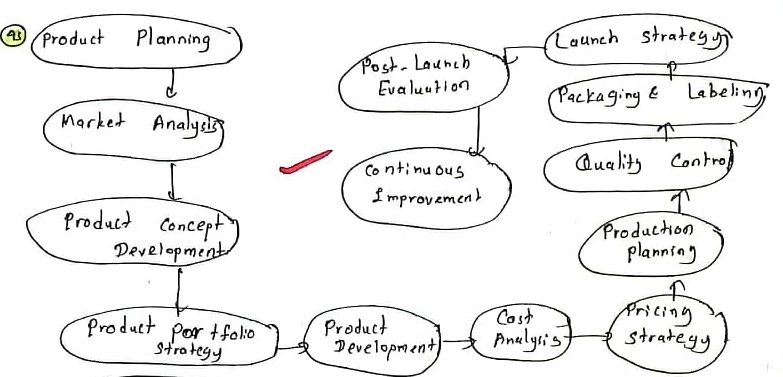 Q5
Product Planning
Market Analysis
Product Concept
Development
Product Portfolio
Strategy
Product
Development
Cost
Analysis
Pricing
Strategy
Production
planning
Quality Control
Packaging & Labeling
Launch Strategy
Post-Launch
Evaluation
Continuous
Improvement